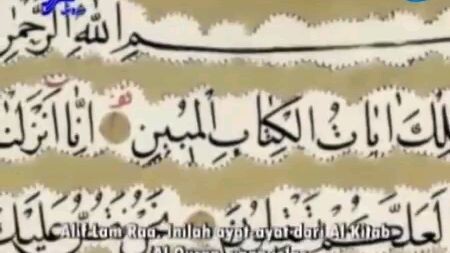 سْمِ اللّٰهِ الرَّحْمٰنِ
تِلْكَ اٰيَاتُ الْكِتَابِ الْمُبٖينِ اِنَّا اَنْزَلْنَا
لَعَلَّكُمْ تَعْقِلُونَ نَحْنُ نَقُصُّ عَلَيْكَ
Alif Lam Raa. Inilah ayat ayat dari Al Kitab